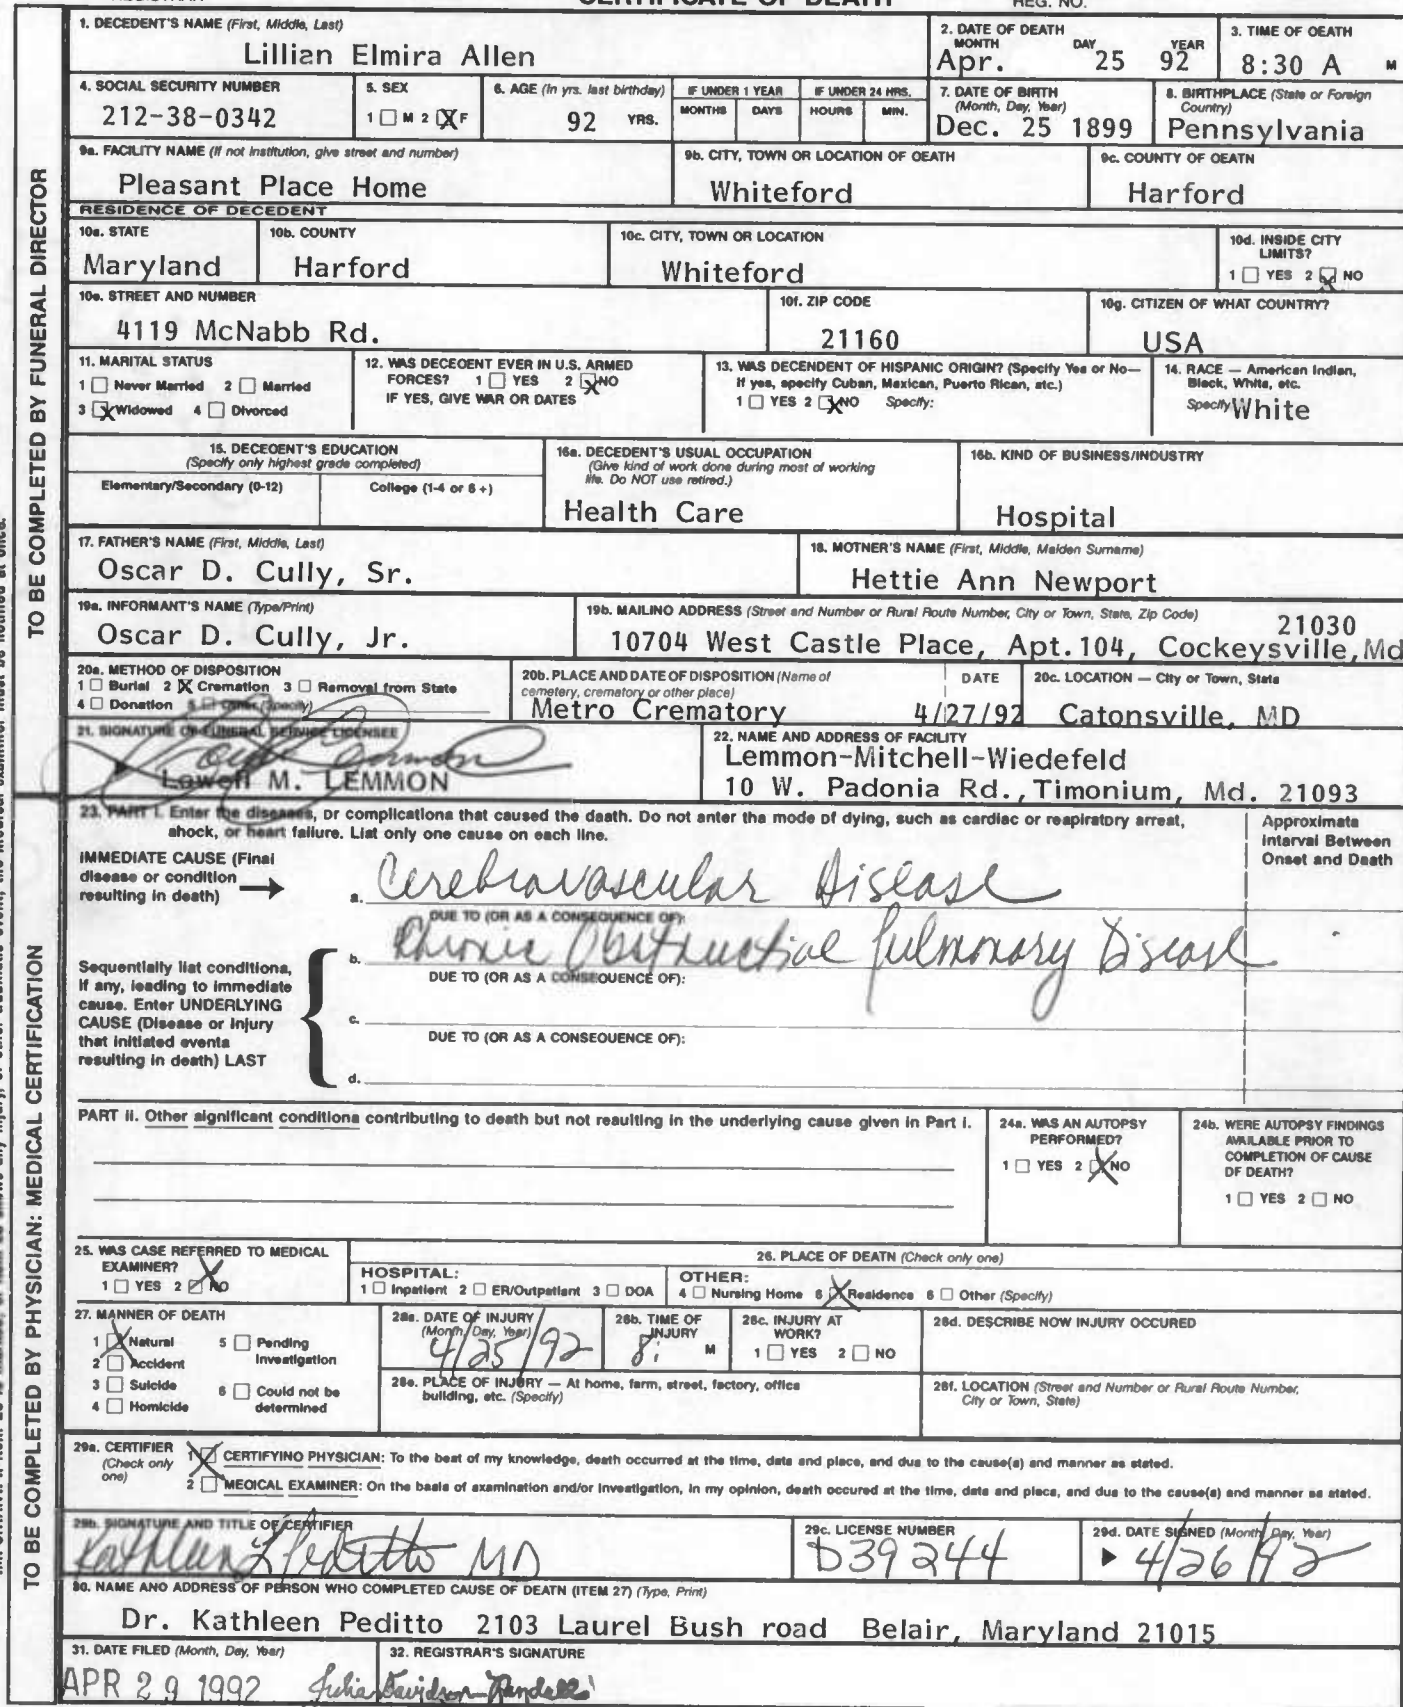 CERTIFICATE OF DEATH REG. NO.
1. DECEDENT'S NAME (First, Middle, Last)
Lillian Elmira Allen
2. DATE OF DEATH
MONTH DAY YEAR
Apr. 25 92
3. TIME OF DEATH
8:30 A M
4. SOCIAL SECURITY NUMBER
212-38-0342
5. SEX
1 M 2 X F
6. AGE (In yrs. last birthday)
92 YRS.
IF UNDER 1 YEAR
MONTHS DAYS
IF UNDER 24 HRS.
HOURS MIN.
7. DATE OF BIRTH
(Month, Day, Year)
Dec. 25 1899
8. BIRTHPLACE (State or Foreign
Country)
Pennsylvania
9a. FACILITY NAME (If not institution, give street and number)
Pleasant Place Home
9b. CITY, TOWN OR LOCATION OF DEATH
Whiteford
9c. COUNTY OF DEATH
Harford
RESIDENCE OF DECEDENT
10a. STATE
Maryland
10b. COUNTY
Harford
10c. CITY, TOWN OR LOCATION
Whiteford
10d. INSIDE CITY
LIMITS?
1 YES 2 X NO
10e. STREET AND NUMBER
4119 McNabb Rd.
10f. ZIP CODE
21160
10g. CITIZEN OF WHAT COUNTRY?
USA
11. MARITAL STATUS
1 Never Married 2 Married
3 X Widowed 4 Divorced
12. WAS DECEDENT EVER IN U.S. ARMED
FORCES? 1 YES 2 X NO
IF YES, GIVE WAR OR DATES
13. WAS DECENDENT OF HISPANIC ORIGIN? (Specify Yes or No—
If yes, specify Cuban, Mexican, Puerto Rican, etc.)
1 YES 2 X NO Specify:
14. RACE — American Indian,
Black, White, etc.
Specify White
15. DECEDENT'S EDUCATION
(Specify only highest grade completed)
Elementary/Secondary (0-12) College (1-4 or 5+)
16a. DECEDENT'S USUAL OCCUPATION
(Give kind of work done during most of working
life. Do NOT use retired.)
Health Care
16b. KIND OF BUSINESS/INDUSTRY
Hospital
17. FATHER'S NAME (First, Middle, Last)
Oscar D. Cully, Sr.
18. MOTHER'S NAME (First, Middle, Maiden Surname)
Hettie Ann Newport
19a. INFORMANT'S NAME (Type/Print)
Oscar D. Cully, Jr.
19b. MAILING ADDRESS (Street and Number or Rural Route Number, City or Town, State, Zip Code)
21030
10704 West Castle Place, Apt.104, Cockeysville, Md
20a. METHOD OF DISPOSITION
1 Burial 2 X Cremation 3 Removal from State
4 Donation 5 Other (Specify)
20b. PLACE AND DATE OF DISPOSITION (Name of
cemetery, crematory or other place)
DATE
Metro Crematory 4/27/92
20c. LOCATION — City or Town, State
Catonsville, MD
21. SIGNATURE OF FUNERAL SERVICE LICENSEE
Lowell M. LEMMON
22. NAME AND ADDRESS OF FACILITY
Lemmon-Mitchell-Wiedefeld
10 W. Padonia Rd., Timonium, Md. 21093
23. PART I. Enter the diseases, or complications that caused the death. Do not enter the mode of dying, such as cardiac or respiratory arrest,
shock, or heart failure. List only one cause on each line.
Approximate
Interval Between
Onset and Death
IMMEDIATE CAUSE (Final
disease or condition
resulting in death)
a. Cerebravascular Disease
DUE TO (OR AS A CONSEQUENCE OF):
b. Chronic Obstructive Pulmonary Disease
DUE TO (OR AS A CONSEQUENCE OF):
c.
DUE TO (OR AS A CONSEQUENCE OF):
d.
Sequentially list conditions,
if any, leading to immediate
cause. Enter UNDERLYING
CAUSE (Disease or injury
that initiated events
resulting in death) LAST
PART II. Other significant conditions contributing to death but not resulting in the underlying cause given in Part I.
24a. WAS AN AUTOPSY
PERFORMED?
1 YES 2 X NO
24b. WERE AUTOPSY FINDINGS
AVAILABLE PRIOR TO
COMPLETION OF CAUSE
OF DEATH?
1 YES 2 NO
25. WAS CASE REFERRED TO MEDICAL
EXAMINER?
1 YES 2 X NO
26. PLACE OF DEATH (Check only one)
HOSPITAL:
1 Inpatient 2 ER/Outpatient 3 DOA
OTHER:
4 Nursing Home 5 X Residence 6 Other (Specify)
27. MANNER OF DEATH
1 X Natural 5 Pending
Investigation
2 Accident
3 Suicide 6 Could not be
determined
4 Homicide
28a. DATE OF INJURY
(Month, Day, Year)
4/25/92
28b. TIME OF
INJURY
8: M
28c. INJURY AT
WORK?
1 YES 2 NO
28d. DESCRIBE HOW INJURY OCCURED
28e. PLACE OF INJURY — At home, farm, street, factory, office
building, etc. (Specify)
28f. LOCATION (Street and Number or Rural Route Number,
City or Town, State)
29a. CERTIFIER
(Check only
one)
1 X CERTIFYING PHYSICIAN: To the best of my knowledge, death occurred at the time, date and place, and due to the cause(s) and manner as stated.
2 MEDICAL EXAMINER: On the basis of examination and/or investigation, in my opinion, death occured at the time, date and place, and due to the cause(s) and manner as stated.
29b. SIGNATURE AND TITLE OF CERTIFIER
Kathleen L Peditto MD
29c. LICENSE NUMBER
D39244
29d. DATE SIGNED (Month, Day, Year)
4/26/92
30. NAME AND ADDRESS OF PERSON WHO COMPLETED CAUSE OF DEATH (ITEM 27) (Type, Print)
Dr. Kathleen Peditto 2103 Laurel Bush road Belair, Maryland 21015
31. DATE FILED (Month, Day, Year)
APR 29 1992
32. REGISTRAR'S SIGNATURE
Julia Davidson-Randall
TO BE COMPLETED BY FUNERAL DIRECTOR
TO BE COMPLETED BY PHYSICIAN: MEDICAL CERTIFICATION